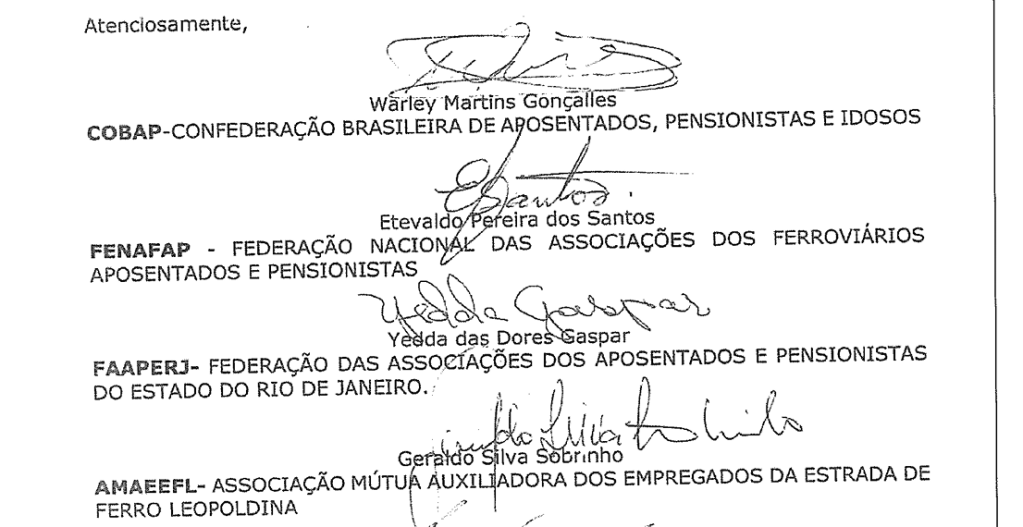 Atenciosamente,
Warley Martins Gonçalles
COBAP-CONFEDERAÇÃO BRASILEIRA DE APOSENTADOS, PENSIONISTAS E IDOSOS
ESantos.
Etevaldo Pereira dos Santos
FENAFAP - FEDERAÇÃO NACIONAL DAS ASSOCIAÇÕES DOS FERROVIÁRIOS
APOSENTADOS E PENSIONISTAS
Yedda Gaspar
Yedda das Dores Gaspar
FAAPERJ- FEDERAÇÃO DAS ASSOCIAÇÕES DOS APOSENTADOS E PENSIONISTAS
DO ESTADO DO RIO DE JANEIRO.
Geraldo Silva Sobrinho
Geraldo Silva Sobrinho
AMAEEFL- ASSOCIAÇÃO MÚTUA AUXILIADORA DOS EMPREGADOS DA ESTRADA DE
FERRO LEOPOLDINA